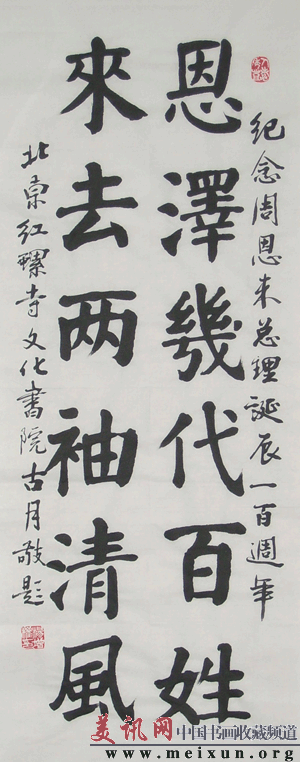 紀念周恩来总理誕辰一百週年
恩澤幾代百姓
來去两袖清風
北京红螺寺文化書院古月敬题
美讯网
中国书画收藏频道
www.meixun.org